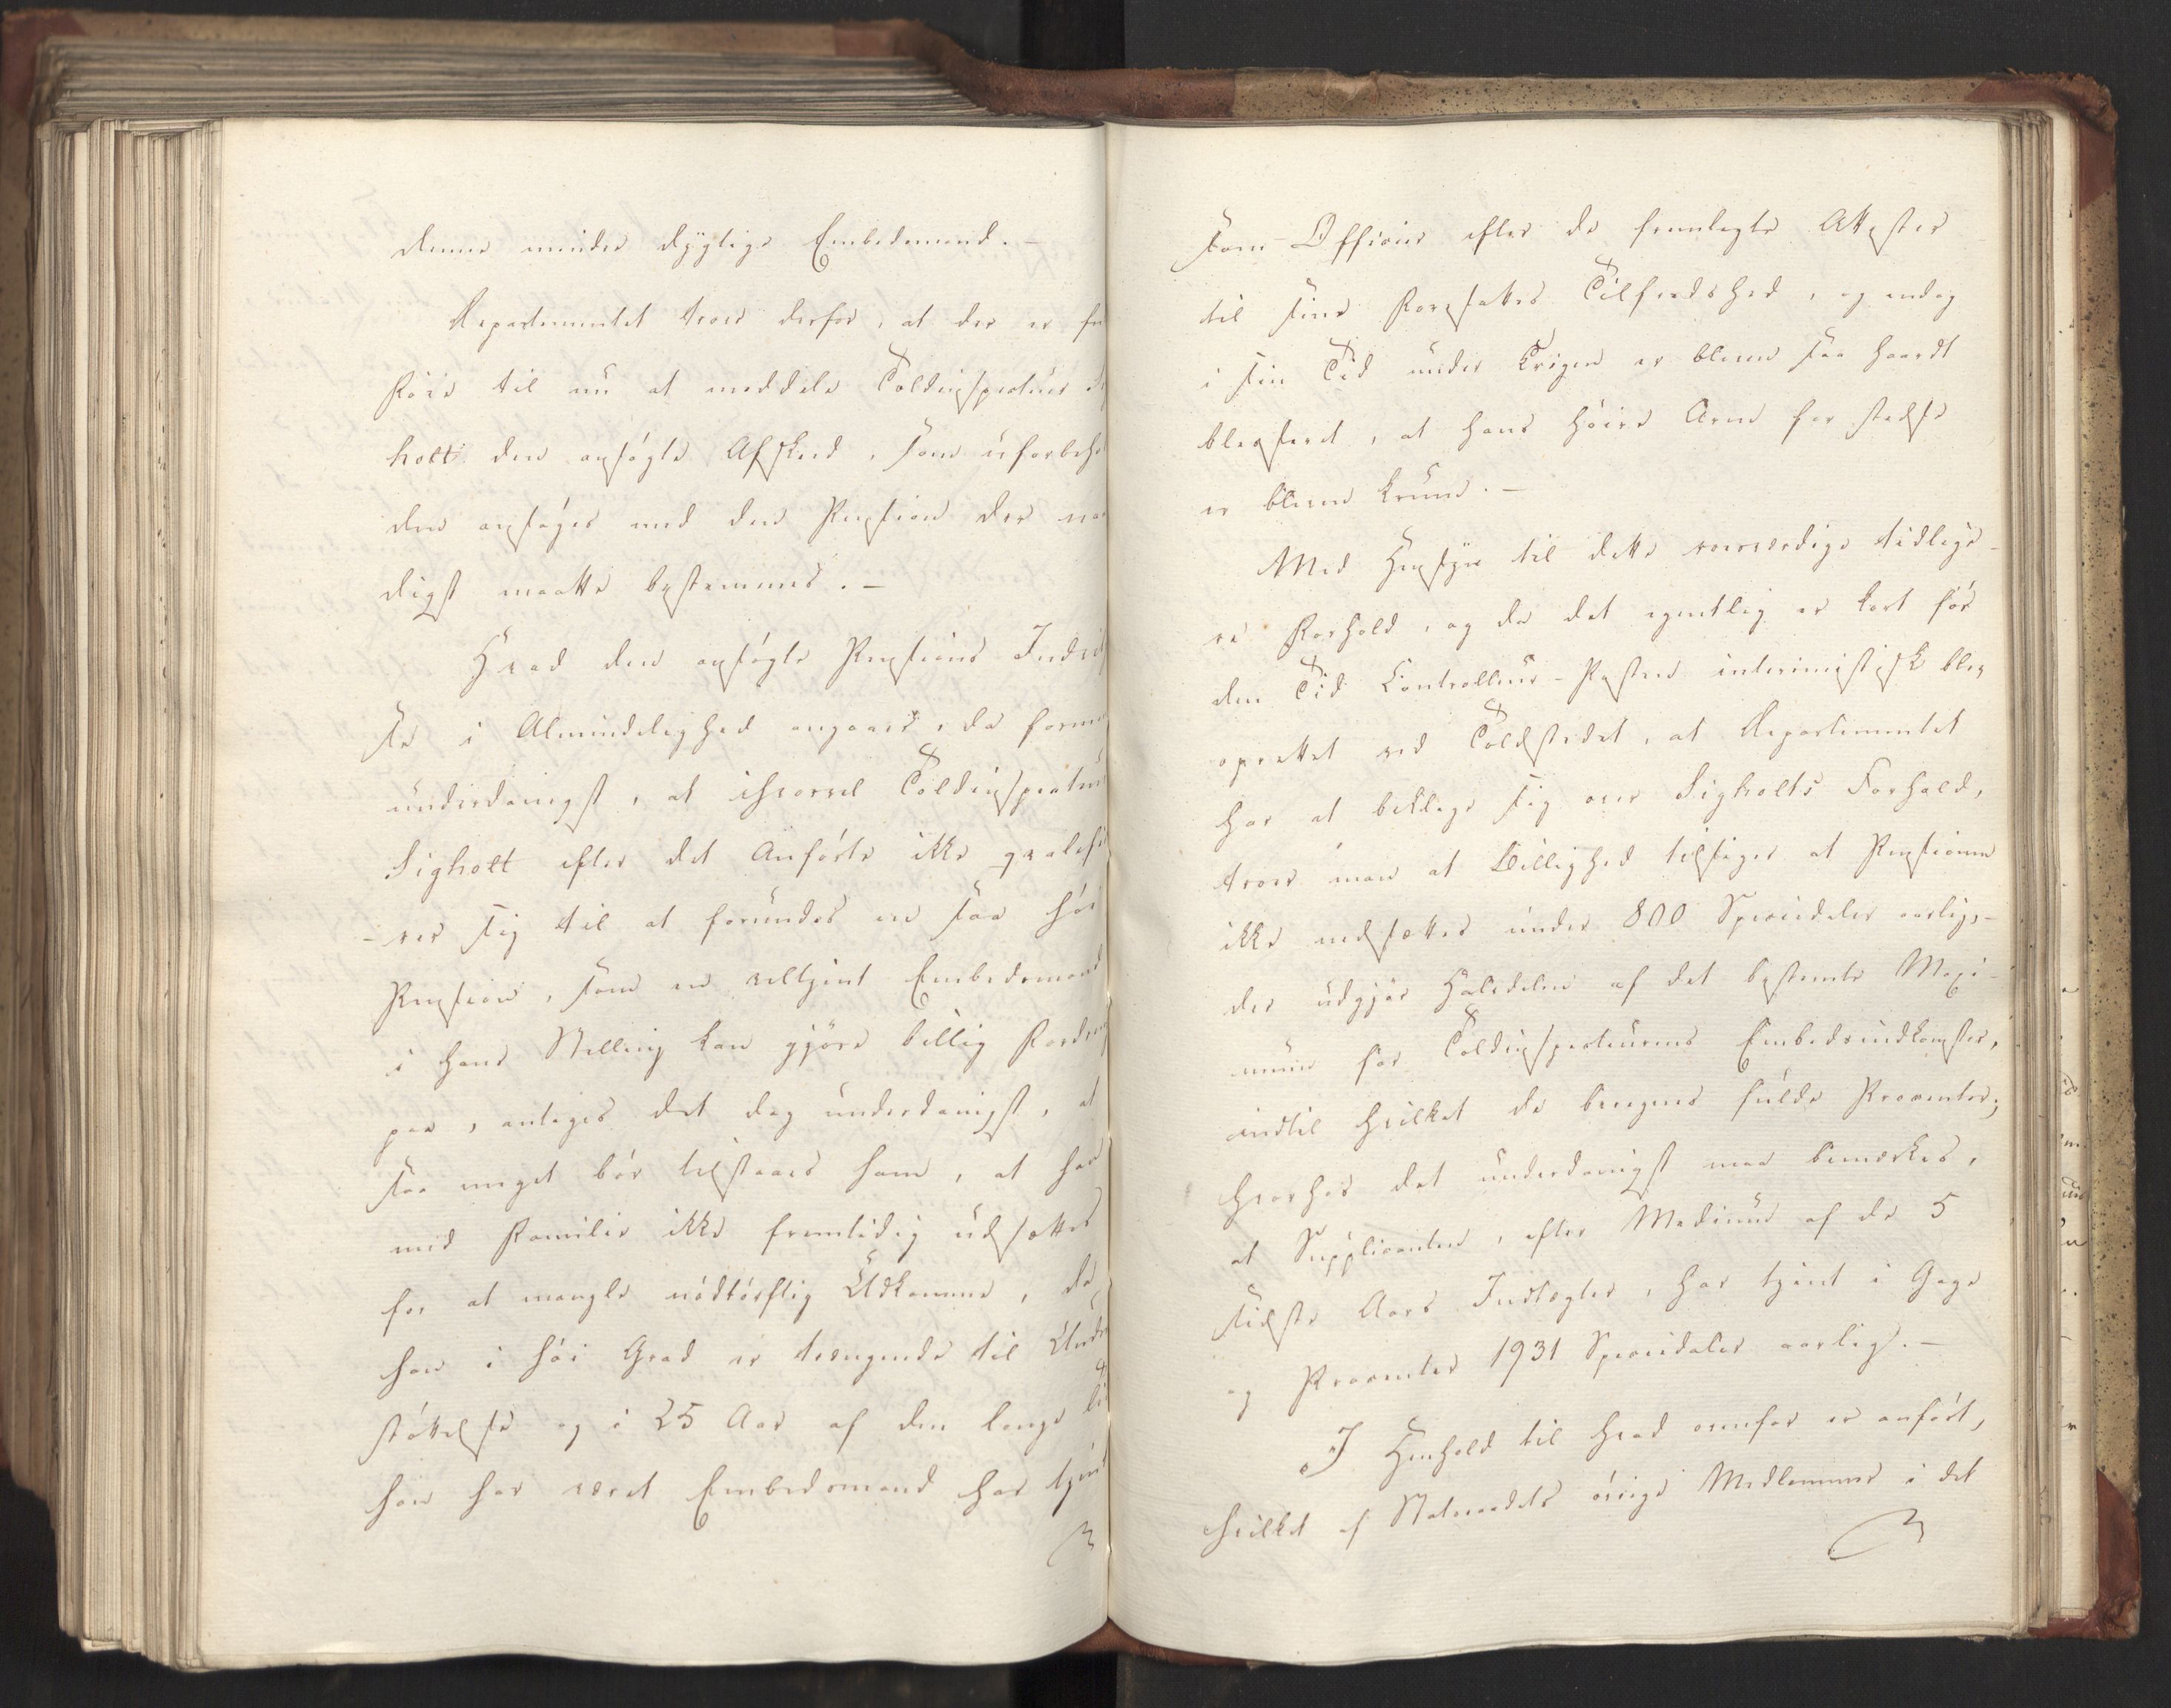 denne mindre dygtige Embedsmand. –
Departementet troer derfor, at der er
Föie til nu at meddele Toldinspecteur
holt den ansögte Afskeed, som uforbeho
den ansöges med den Pension der naa
digst maatte bestemmes. –
Hvad den ansögte Pensions
se i Almindelighed angaaer, da forme
underdanigst, at ihvorvel Toldinspecteur
Sigholt efter det Anförte ikke qvalifi
-cer sig til at forundes en saa höi
Pension, som en veltjent Embedsmand
i hans Stilling kan gjöre billig Fordring
paa, antages det dog underdanigst, at
saa meget bör tilstaaes ham, at han
med Familie ikke fremtidig udsættes
for at mangle nödtörftig Udkomme, da
han i höi Grad er trængende til Under
stöttelse og i 25 Aar af den lange Tid
han har været Embedsmand har tjent
som Officier efter de fremlagte Attester
til sine Foresattes Tilfredshed, og endog
i sin Tid under Krigen er bleven saa haardt
blesseret, at hans höire Arm for stedse
er bleven krum. –
Med Hensyn til dette roesværdige tidlige-
re Forhold, og da det egentlig er kort för
den Tid Controlleur-Posten interimistisk blev
oprettet ved Toldstedet, at Departementet
har at beklage sig over Sigholts Forhold,
troer man at Billighed tilsiger at Pensionen
ikke nedsættes under 800 Speciedaler aarlig, –
der udgjör Halvdelen af det bestemte Maxi-
mum for Toldinspecteurens Embedsindkomster,
indtil hvilket de beregnes fulde Procenter;
hvorhos det underdanigst maa bemærkes,
at Supplicanten, efter Medium af de 5
sidste Aars Indtægter, har tjent i Gage
og Procenter 1931 Speciedaler aarlig. –
I Henhold til hvad ovenfor er anfört,
hvilket af Statsraadets övrige Medlemmer i det